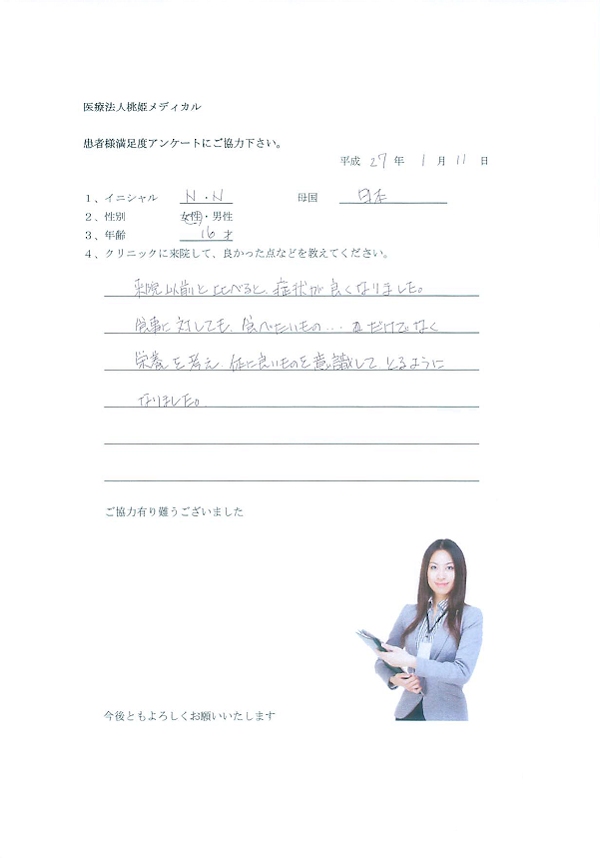 医療法人桃姫メディカル
患者様満足度アンケートにご協力下さい。
平成 27 年 1 月 11 日
1、イニシャル N・N 母国 日本
2、性別 女性・男性
3、年齢 16 才
4、クリニックに来院して、良かった点などを教えてください。
来院以前と比べると、症状が良くなりました。
食事に対しても、食べたいもの… だけでなく
栄養を考え、体に良いものを意識してとるように
なりました。
ご協力有り難うございました
今後ともよろしくお願いいたします